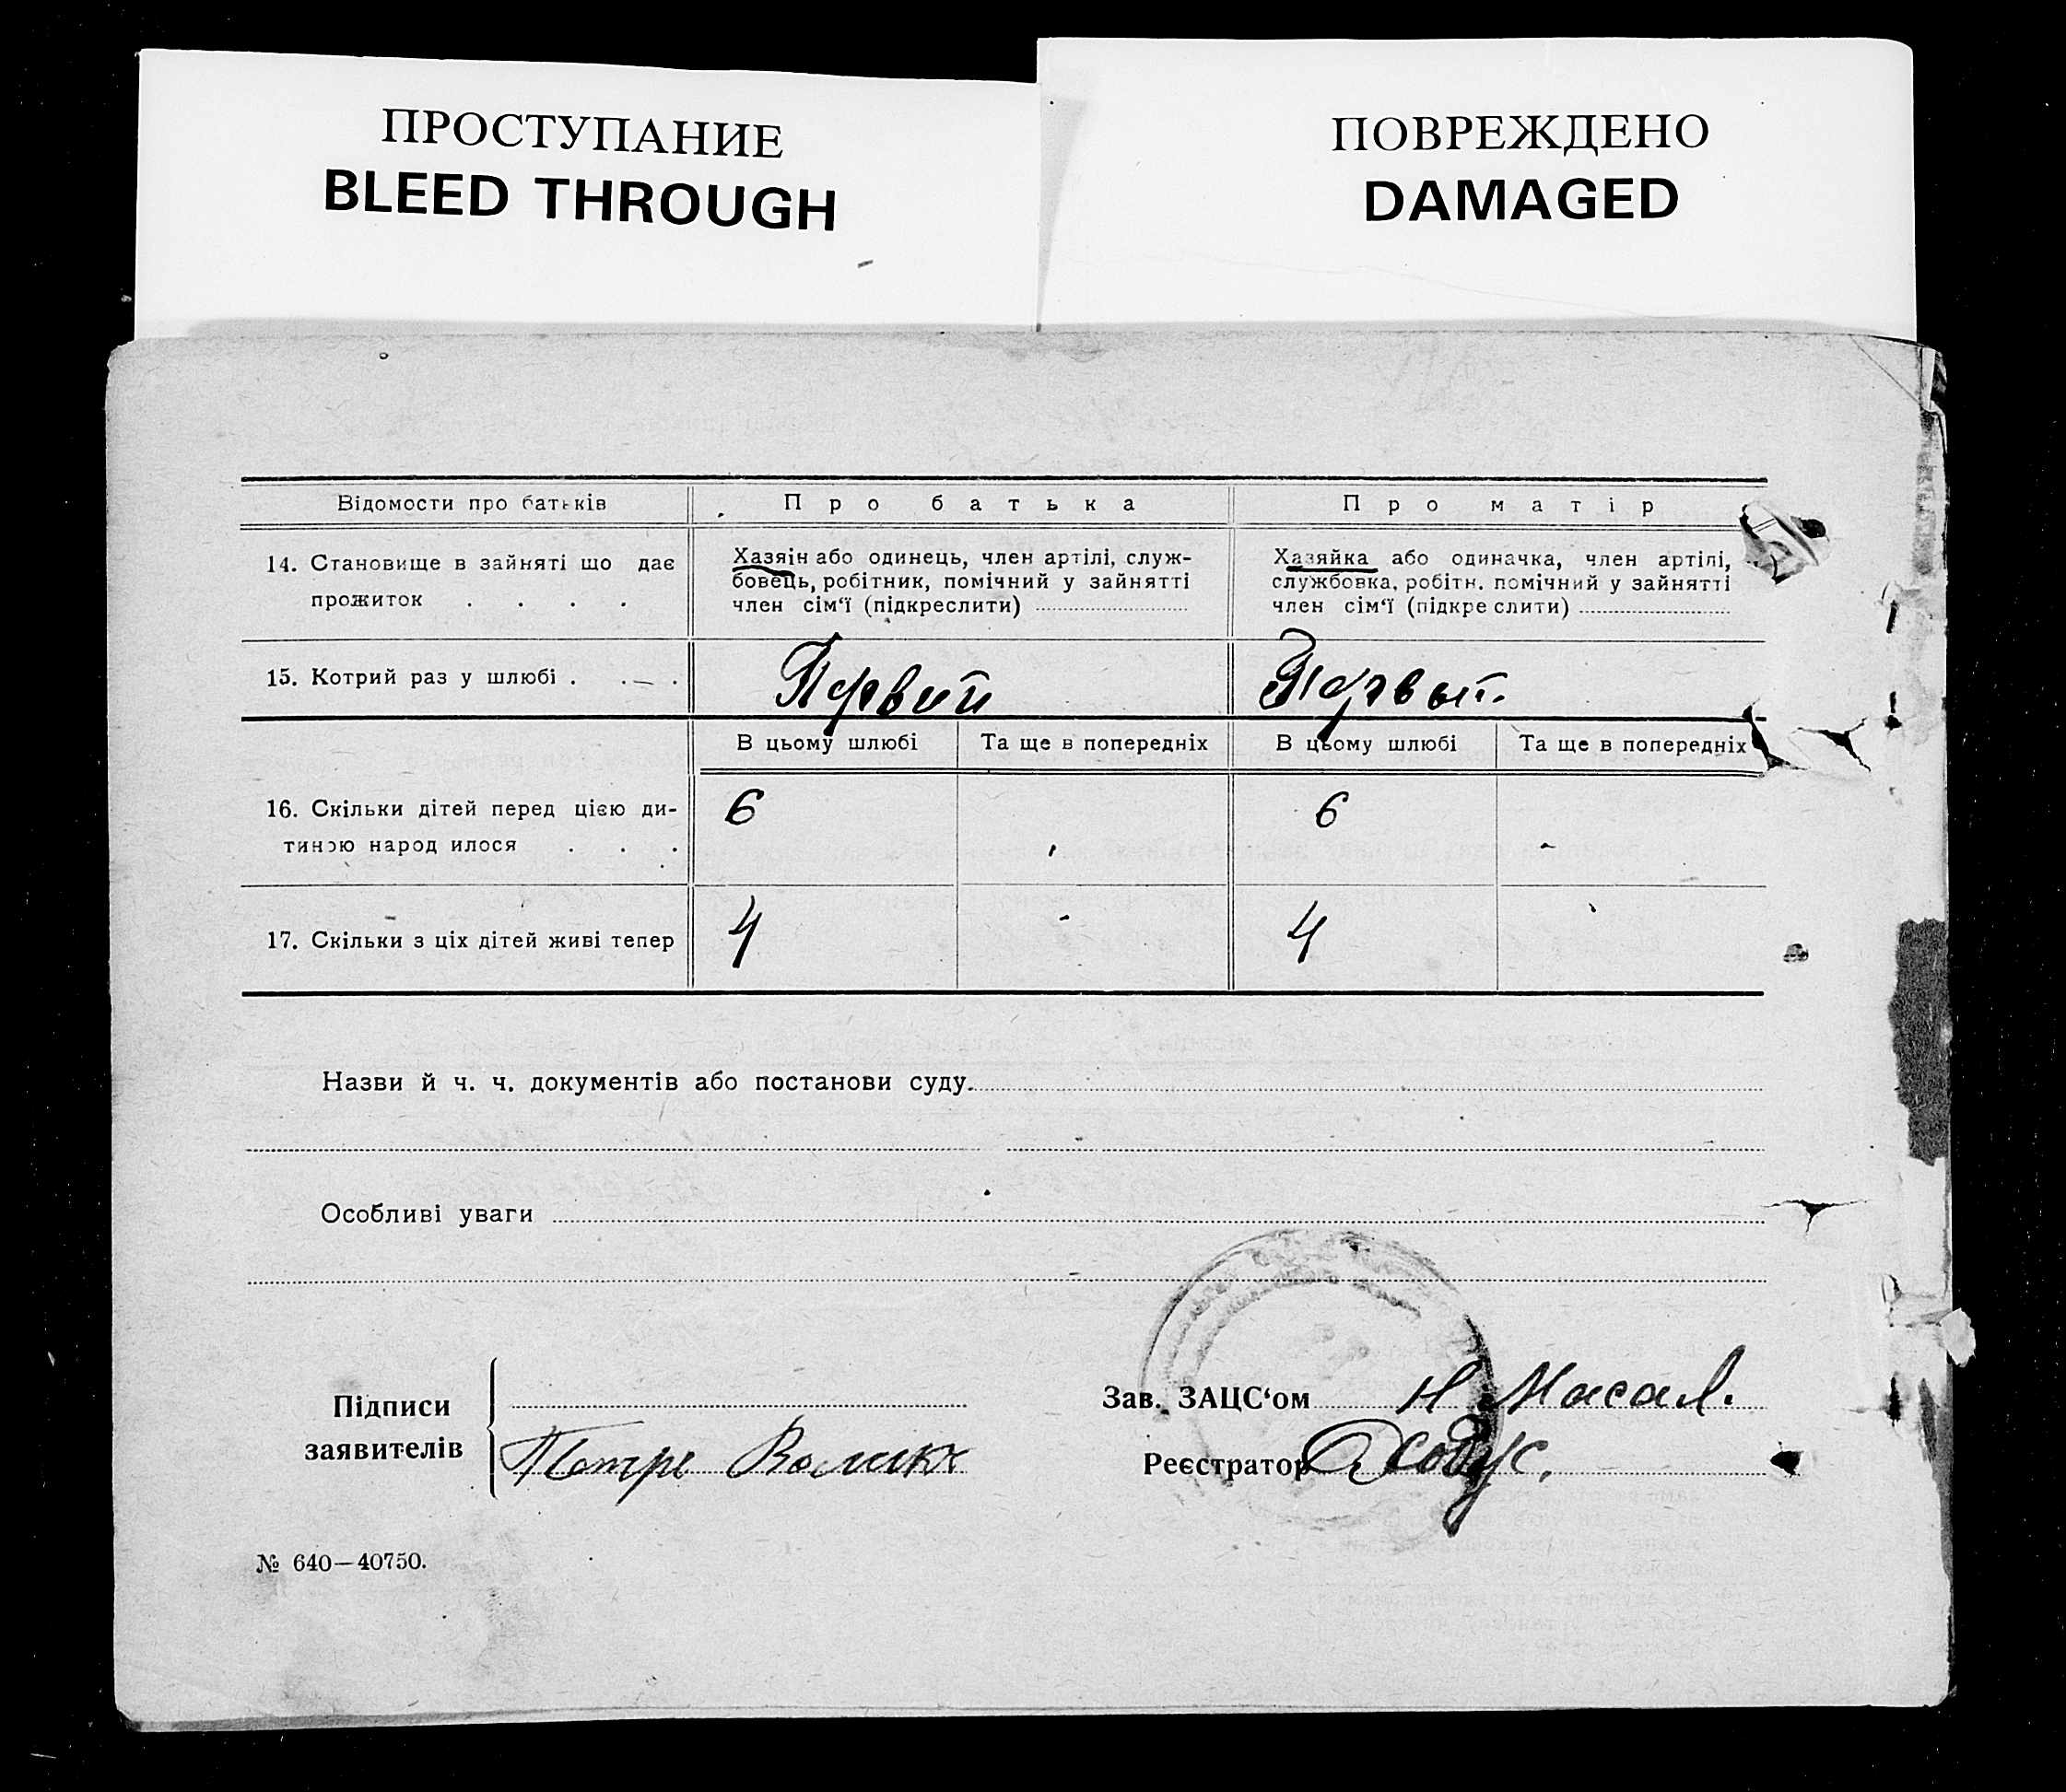 ПРОСТУПАНИЕ
BLEED THROUGH
ПОВРЕЖДЕНО
DAMAGED
Відомости про батьків
Про батька
Про матір
14. Становище в зайняті що дає
прожиток . . . .
Хазяін або одинець, член артілі, служ-
бовець, робітник, помічний у зайнятті
член сім‘ї (підкреслити)
Хазяйка або одиначка, член артілі,
службовка, робітн. помічний у зайнятті
член сім‘ї (підкре слити)
15. Котрий раз у шлюбі . . .
Первий
Первый
В цьому шлюбі
Та ще в попередніх
В цьому шлюбі
Та ще в попередніх
16. Скільки дітей перед цією ди-
тиною народ илося . . .
6
6
17. Скільки з ціх дітей живі тепер
4
4
Назви й ч. ч. документів або постанови суду
Особливі уваги
Підписи
заявителів
Петре
Зав. ЗАЦС‘ом Н Масал.
Реєстратор
№ 640—40750.